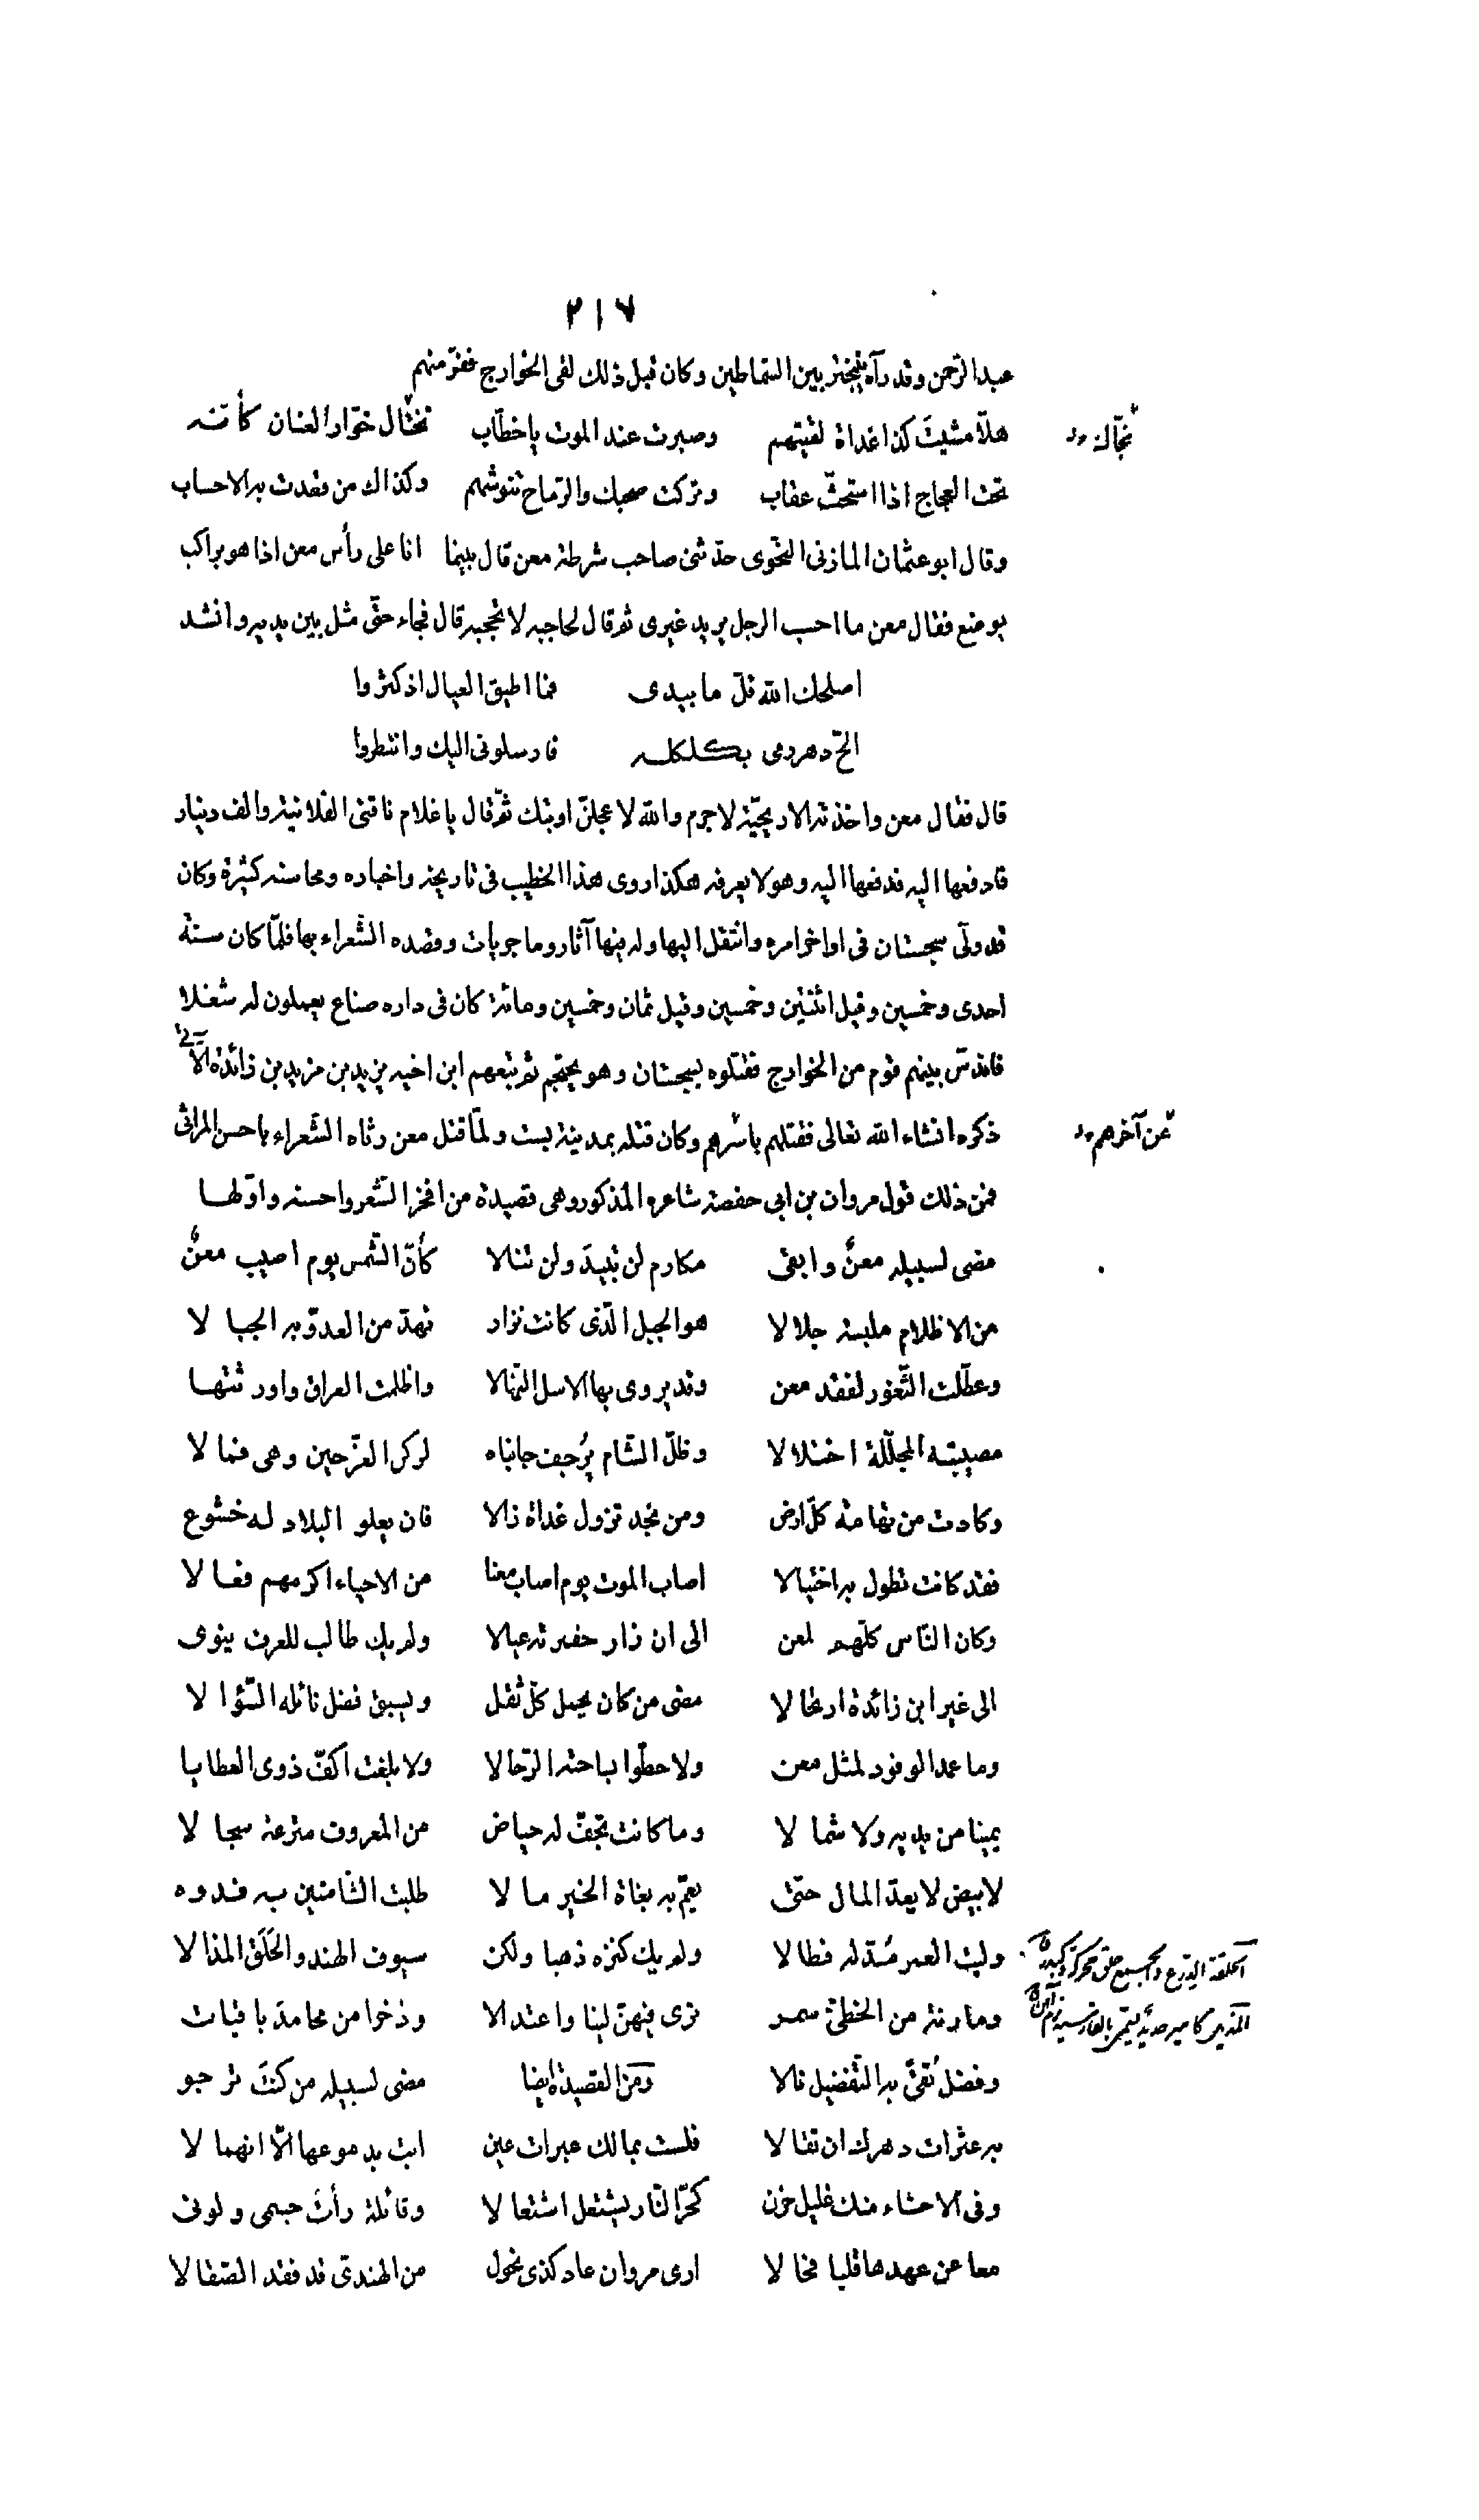 ٢١٧
عبد الرّحمن وقد رآه يتبختر بين السّماطين وكان قبل ذلك لقى الخوارج ففرّ منهم
هلّا مشيتَ كذا غداة لقيتهم وصبرت عند الموت يا خطّاب نختال خوّار العنان كأنه
نجّاك
تحت العجاج اذا استحثّ عقاب وتركت صحبك والرّماح تنوشهم وكذاك من قعدت به الاحساب
وقال ابو عثمان المازنى النّحوى حدّثنى صاحب شرطة معن قال بينما انا على رأس معن اذا هو براكب
يوضع فقال معن ما احسب الرجل يريد غيرى ثم قال لحاجبه لا تحجبه قال فجاء حتّى مثل بين يديه وانشد
اصلحك الله قلّ ما بيدى فما اطيق العيال اذ كثروا
الحّ دهر رمى بكلكله فارسلونى اليك وانتظروا
قال فقال معن واخذته الاريحيّة لا جرم والله لاعجلنّ اوبتك ثمّ قال يا غلام ناقتى الفلانية والف دينار
فادفعها اليه فدفعها اليه وهو لا يعرفه هكذا روى هذا الخطيب فى تاريخه واخباره ومحاسنه كثيرة وكان
قد ولّى سجستان فى اواخر امره وانتقل اليها وله فيها آثار وماجريات وقصده الشّعراء بها فلمّا كان سنة
احدى وخمسين وقيل اثنتين وخمسين وقيل ثمان وخمسين ومائة كان فى داره صناع يعملون له شغلا
فاندسّ بينهم قوم من الخوارج فقتلوه بسجستان وهو يحتجم ثم تبعهم ابن اخيه يزيد بن مزيد بن زائدة الآتى
ذكره انشاء الله تعالى فقتلهم باسْرهم وكان قتله بمدينة بست ولمّا قتل معن رثاه الشّعراء باحسن المراثى
عن آخرهم
فمن ذلك قول مروان بن ابى حفصة شاعره المذكور وهى قصيدة من افخر الشّعر واحسنه واوّلها
مضى لسبيله معنٌ وابقى مكارم لن تبيدَ ولن تنالا كأنّ الشّمس يوم اصيب معنٌ
من الاظلام ملبسة جلالا هو الجبل الّذى كانت نزار تهدّ من العدوّ به الجبالا
وعطّلت الثّغور لفقد معن وقد يروى بها الاسل النّهالا واظلمت العراق واورثتها
مصيبته المجلّلة اختلالا وظلّ الشّام يرُجف جانباه لركن العزّ حين وهى فمالا
وكادت من تهامة كلّ ارض ومن نجد تزول غداة زالا فان يعلو البلاد له خشوع
فقد كانت تطول به اختيالا اصاب الموت يوم اصاب معنا من الاحياء اكرمهم فعالا
وكان النّاس كلّهم لمعن الى ان زار حفرته عيالا ولم يك طالب للعرف ينوى
الى غير ابن زائدة ارتحالا مضى من كان يحمل كلّ ثقل ويسبق فضل نائله السّؤالا
وما عمد الوفود لمثل معن ولا حطّوا بساحته الرّحالا ولا بلغت اكفّ ذوى العطايا
يمينا من يديه ولا شمالا وما كانت تجفّ له حياض من المعروف مترعة سجالا
لابيض لا يعدّ المال حتّى يعمّ به بغاة الخير مالا طلبت الشامتين به فدوه
وليت العمر مُدّ له فطالا ولم يك كنزه ذهبا ولكن سيوف الهند والحَلَق المذالا
الحلقة الدّرع والجمع حلق محركة
ومارنة من الخطىّ سمر ترى فيهنّ لينا واعتدالا وذخرا من محامدَ باقيات
وفضل تُقىً به التّفضيل نالا ومن القصيدة ايضا مضى لسبيله من كنتَ ترجو
به عثرات دهرك ان تقالا فلست بمالك عبرات عين ابت بدموعها الّا انهمالا
وفى الاحشاء منك غليل حزن كحرّ النّار يشتعل اشتعالا وقائلة رأتْ جسمى ولونى
معا عن عهدها قلبا فحالا ارى مروان عاد كذى نحول من الهندىّ قد فقد الصّقالا